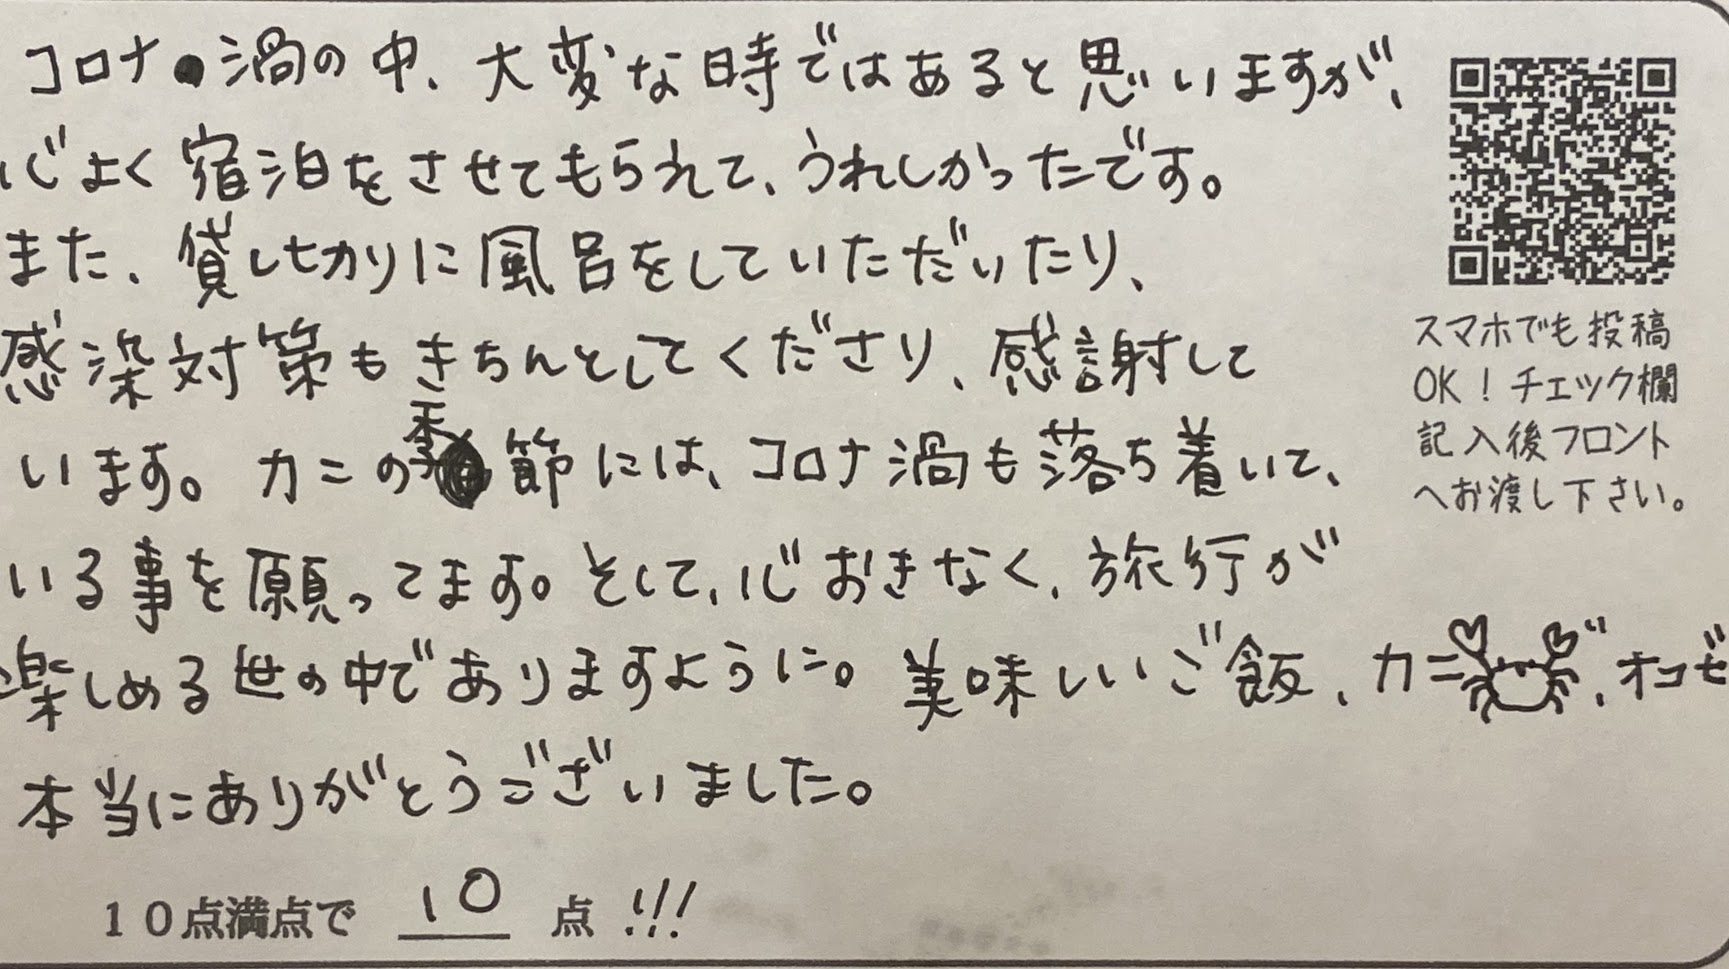 コロナ渦の中、大変な時ではあると思いますが、
心よく宿泊をさせてもらえて、うれしかったです。
また、貸し切りに風呂をしていただいたり、
感染対策もきちんとしてくださり、感謝して
います。カニの季節には、コロナ渦も落ち着いて、
いる事を願ってます。そして、心おきなく、旅行が
楽しめる世の中でありますように。美味しいご飯、カニ、オコゼ
本当にありがとうございました。
10点満点で 10 点!!!
スマホでも投稿
OK！チェック欄
記入後フロント
へお渡し下さい。